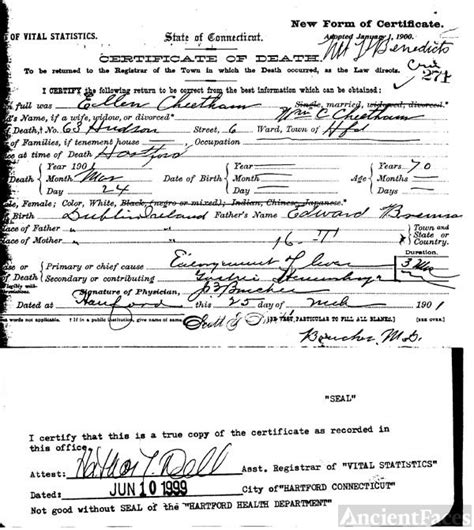 New Form of Certificate.
OF VITAL STATISTICS. State of Connecticut. Adopted January 1, 1900.
Mt St Benedict
CERTIFICATE OF DEATH.
To be returned to the Registrar of the Town in which the Death occurred, as the Law directs.
271
I CERTIFY the following return to be correct from the best information which can be obtained:
full was Ellen Cheetham Single, married, widowed, divorced.
's Name, if a wife, widow, or divorced Wm C. Cheetham
Death, No. 63 Hudson Street, 6 Ward, Town of Hfd
of Families, if tenement house Occupation
ce at time of Death Hartford
Year 1901 Year Years 70
Death Month Mar Date of Birth Month Age Months
Day 24 Day Days
e, Female; Color, White, Black, (negro or mixed); Indian, Chinese, Japanese.
Birth Dublin Ireland Father's Name Edward
ace of Father Town and
State or
Country.
ace of Mother
Duration.
se or Primary or chief cause of liver 3
Death Secondary or contributing
Signature of Physician,
Dated at Hartford this 25 day of Mch 1901
ds not applicable. † If in a public institution, give name of same. BE VERY PARTICULAR TO FILL ALL BLANKS. [SEE OVER.]
M.D.
"SEAL"
I certify that this is a true copy of the certificate as recorded in
this office.
Attest: Asst. Registrar of "VITAL STATISTICS"
Dated: JUN 10 1999 City of "HARTFORD CONNECTICUT"
Not good without SEAL of the "HARTFORD HEALTH DEPARTMENT"
AncientFaces